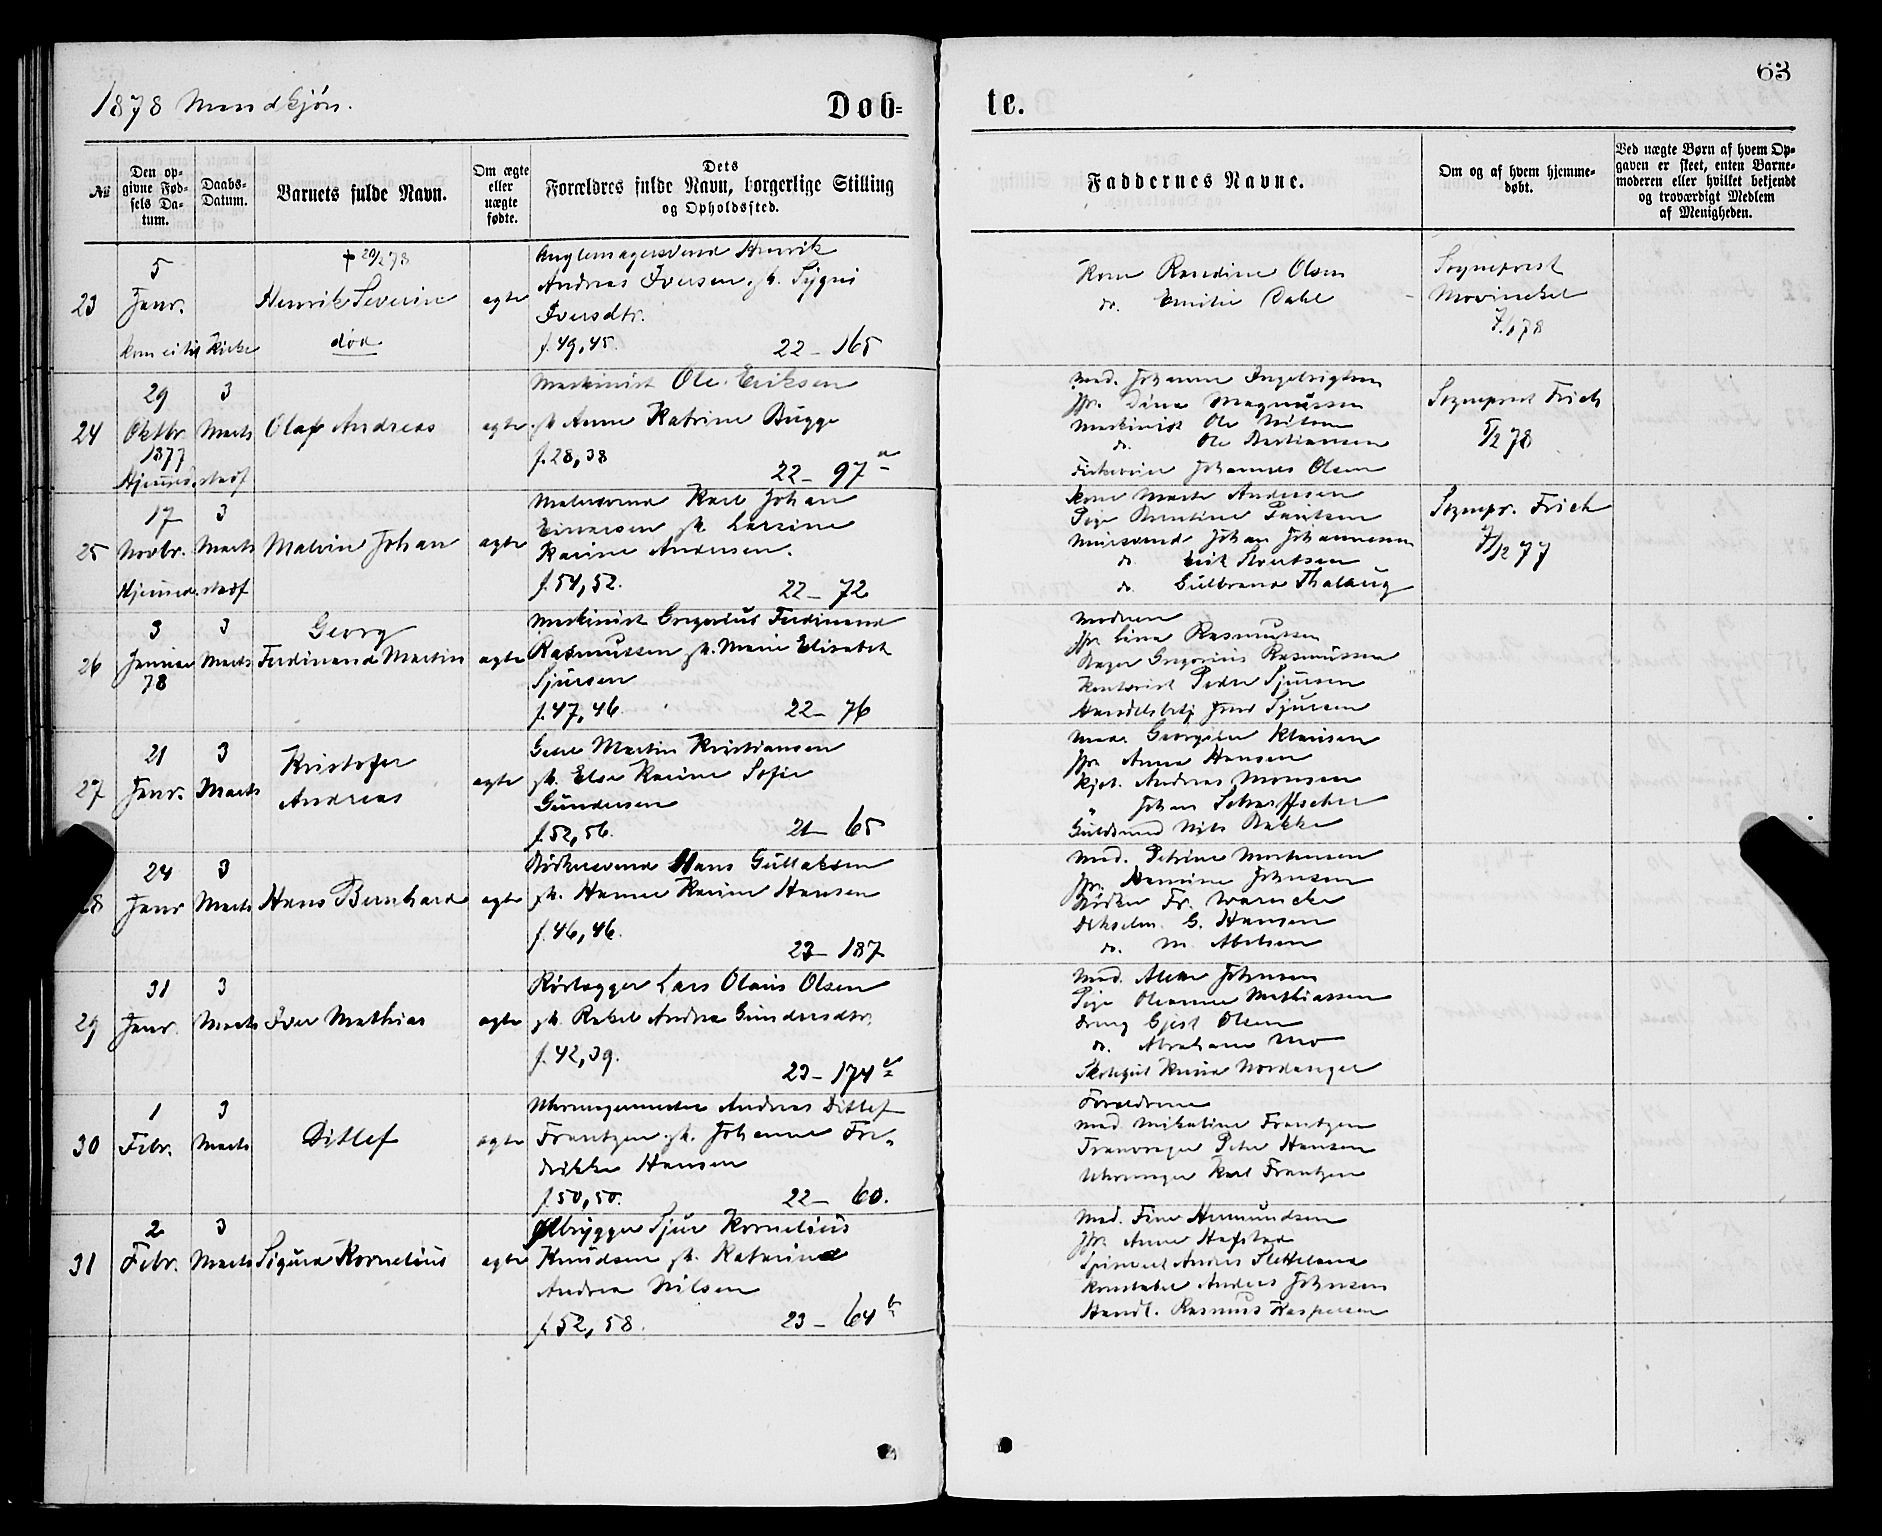 63
1878 Mandkjøn.
Døb=
te.
№
Den op-
givne Fød-
sels Da-
tum.
Daabs-
Datum.
Barnets fulde Navn.
Om ægte
eller
uægte
fødte.
Dets
Forældres fulde Navn, borgerlige Stilling
og Opholdssted.
Faddernes Navne.
Om og af hvem hjemme-
døbt.
Ved uægte Børn af hvem Op-
gaven er skeet, enten Barne-
moderen eller hvilket bekjendt
og troværdigt Medlem
af Menigheden.
23
5
Janr.
kom ei til Kirke
† 20/2 78
Henrik Severin
død
ægte
Andreas Iversen, h.
Iversdtr.
f. 49, 45.
22 - 165
Kone Rasedine Olsen
do. Emilie Dahl
Sogneprest
Movinckel
7/1 78
24
29
Oktbr
1877
Hjemmed. stadf
3
Marts
Olaf Andreas
ægte
Maskinist Ole Eriksen
h. Anne Katrine Bugge
f. 28, 38
22 - 97 a
Mad. Johanne Ingebrigtsen
Jfr. Dina Magnussen
Maskinist Ole Nilsen
do. Ole Bastiansen
Johannes Olsen
Sogneprest Frich
5/2 78
25
17
Novbr.
Hjemmed. stadf
3
Marts
Malvin Johan
ægte
Malersvend Karl Johan
Einarsen h. Larsine
Karine Andersen.
f. 54, 52.
22 - 72
Kone Marte Andersen
Pige Berntine
Muursvend Johan Johannesen
do. Erik Sivertsen
do Gulbrand Thalaug
Sognepr. Frich
77
26
3
Januar
78
3
Marts
Georg
Ferdinand Martin
ægte
Maskinist Gregorius Ferdinand
Rasmussen h. Marie Elisabet
Sjursen
f. 47, 46.
22 - 76
Moderen
Jfr. Lina Rasmussen
Bager Gregorius Rasmussen
Kontorist Peder Sjursen
Handelsbetj Sjursen
27
21
Janr.
3
Marts
Kristofer
Andreas
ægte
Martin Kristiansen
h. Else Karine Sofie
Gundersen
f. 52, 56.
21 - 65
Mad. Georgine Klausen
Jfr. Anna Hansen
Kjøt. Andreas Monsen
" Johan
Guldsmed Nils Bakke
28
24
Janr
3
Marts
Hans Bernhard
ægte
Bødkersvend Hans Gullaksen
h. Hanne Karine Hansen
f. 46, 46.
23 - 187
Mad. Petrine Mortensen
Jfr. Hansine Johnsen
Bødker Fr. Warncke
G. Hansen
do. M. Abelsen
29
31
Janr.
3
Marts
Iver Mathias
ægte
Rørlægger Lars Olaus Olsen
h. Rakel Andrea Gundersdtr.
f. 42, 39.
23 - 174
Mad. Johnsen
Pige Oleanne Mathiassen
Dreng Gjest Olsen
do. Abraham Mo
Nordanger
30
1
Febr.
3
Marts
Ditlef
ægte
Uhrmagermester Andreas Ditlef
Frantzen h. Johanne Fre-
drikke Hansen
f. 50, 50.
22 - 60.
Forældrene
Mad. Mikaline Frantzen
Tranvrager Peter Hansen
Uhrmager Karl Frantzen
31
2
Febr.
3
Marts
Sigurd Kornelius
ægte
Ølbrygger Sjur Kornelius
Knudsen h. Katarina
Andrea Nilsen
f. 52, 58.
23 - 64 b
Mad. Fine Amundsen
Jfr. Anne Hafstad
Anders Sletteland
Konstabel Anders Johnsen
Handl. Rasmus Kaspersen